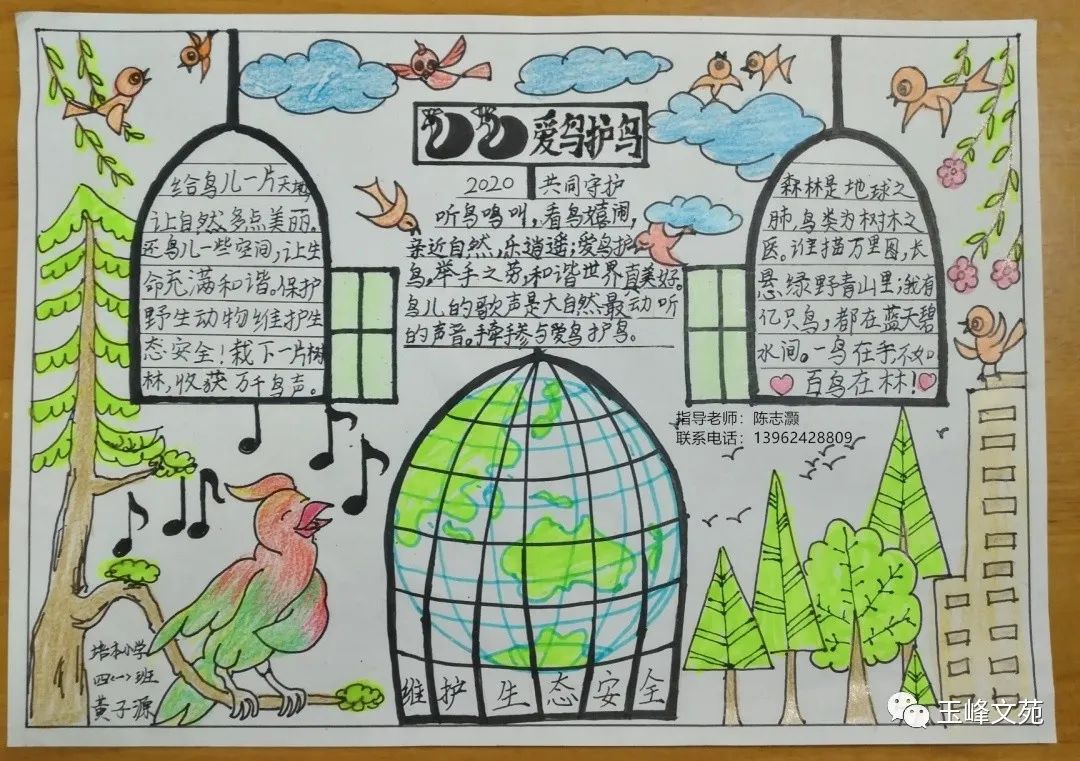 爱鸟护鸟
给鸟儿一片天地,
让自然多点美丽。
还鸟儿一些空间,让生
命充满和谐。保护
野生动物维护生
态安全!栽下一片树
林,收获万千鸟声。
2020 共同守护
听鸟鸣叫,看鸟嬉闹,
亲近自然,乐逍遥;爱鸟护
鸟,举手之劳,和谐世界真美好。
鸟儿的歌声是大自然最动听
的声音。手牵手参与爱鸟护鸟。
森林是地球之
肺,鸟类为树木之
医。谁描万里图,长
悬绿野青山里;我有
亿只鸟,都在蓝天碧
水间。一鸟在手不如
百鸟在林!
指导老师:陈志灏
联系电话:13962428809
培本小学
四(一)班
黄子源
维护生态安全
玉峰文苑